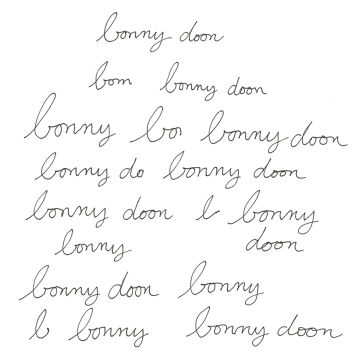 bonny doon
bom bonny doon
bonny bo bonny doon
bonny do bonny doon
bonny doon b bonny
bonny doon
bonny doon bonny
b bonny bonny doon